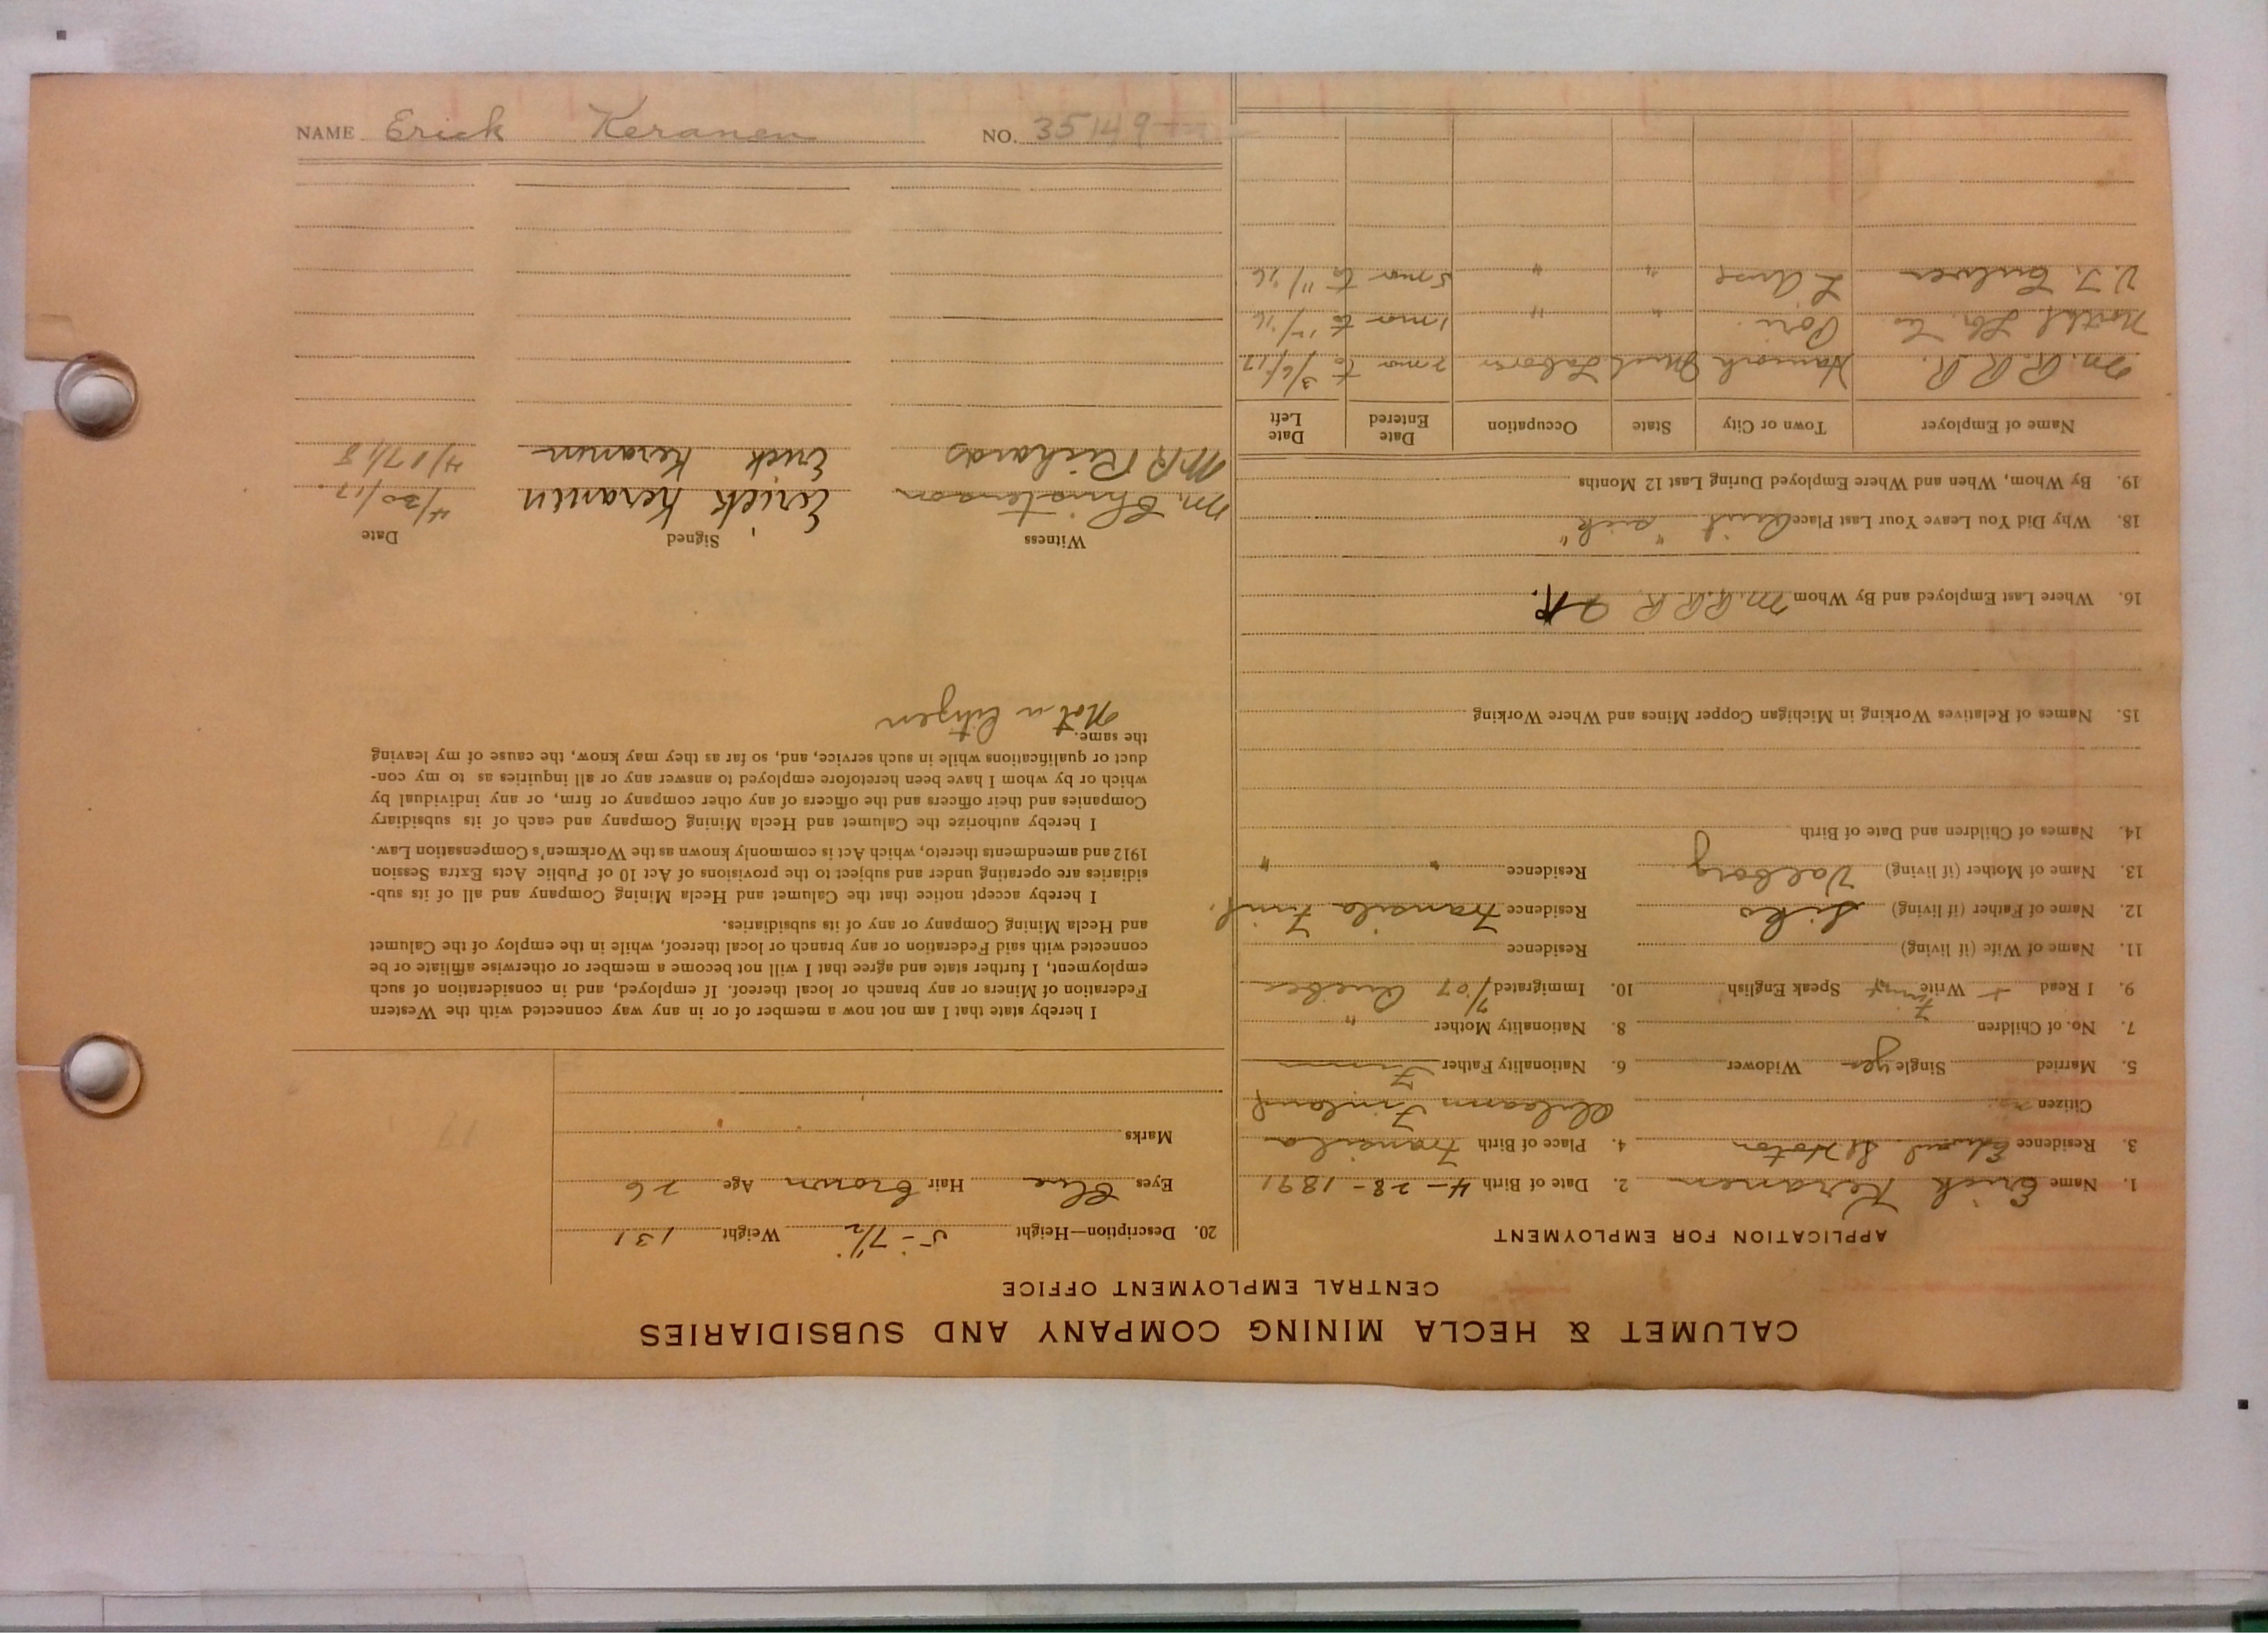 CALUMET & HECLA MINING COMPANY AND SUBSIDIARIES
CENTRAL EMPLOYMENT OFFICE
APPLICATION FOR EMPLOYMENT
1. Name Erick Keranen 2. Date of Birth 4-28-1891
3. Residence Edward St Hoton 4. Place of Birth Fransila
Citizen no Uleaarn Finland
5. Married Single yes Widower 6. Nationality Father Finn
7. No. of Children 8. Nationality Mother "
9. I Read + Write Finnish Speak English 10. Immigrated 7/07 Quebec
11. Name of Wife (if living) Residence
12. Name of Father (if living) Residence Fransila Finl.
13. Name of Mother (if living) Valborg Residence " "
14. Names of Children and Date of Birth
15. Names of Relatives Working in Michigan Copper Mines and Where Working
16. Where Last Employed and By Whom M.R.R.R.
18. Why Did You Leave Your Last Place Quit "sick"
19. By Whom, When and Where Employed During Last 12 Months
Name of Employer Town or City State Occupation Date Entered Date Left
M.R.R.R. Hancock Mich Laborer 2 mo to 3/6/17
Northl. Lbr. Co Pori " " 1 mo to 12/16
V.F. Culver L'Anse " " 5 mo to 11/16
20. Description—Height 5'-7 1/2" Weight 131
Eyes Blue Hair Brown Age 26
Marks
I hereby state that I am not now a member of or in any way connected with the Western
Federation of Miners or any branch or local thereof. If employed, and in consideration of such
employment, I further state and agree that I will not become a member or otherwise affiliate or be
connected with said Federation or any branch or local thereof, while in the employ of the Calumet
and Hecla Mining Company or any of its subsidiaries.
I hereby accept notice that the Calumet and Hecla Mining Company and all of its sub-
sidiaries are operating under and subject to the provisions of Act 10 of Public Acts Extra Session
1912 and amendments thereto, which Act is commonly known as the Workmen's Compensation Law.
I hereby authorize the Calumet and Hecla Mining Company and each of its subsidiary
Companies and their officers and the officers of any other company or firm, or any individual by
which or by whom I have been heretofore employed to answer any or all inquiries as to my con-
duct or qualifications while in such service, and, so far as they may know, the cause of my leaving
the same.
Not a Citizen
Witness Signed Date
M. Christenson Erick Keranen 4/30/17.
MR Richards Erick Keranen 4/17/18
NAME Erick Keranen NO. 35149